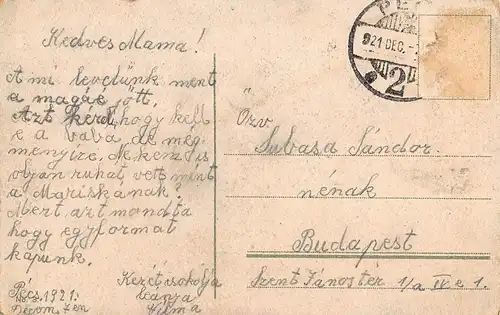 Kedves Mama!
A mi levelünk ment
a magáé jött.
Azt kérd, hogy kell
e a baba, de még
mennyire. Nekem is
olyan ruhát vett mint
a Mariskának?
Mert azt mondta
hogy egyformát
kapunk.
Kezét csókolja
leánya
Vilma
Pécs, 1921.
PÉCS
921 DEC.
2
Özv.
Subasa Sándor
nénak
Budapest
Szent János tér 1/a IV e 1.